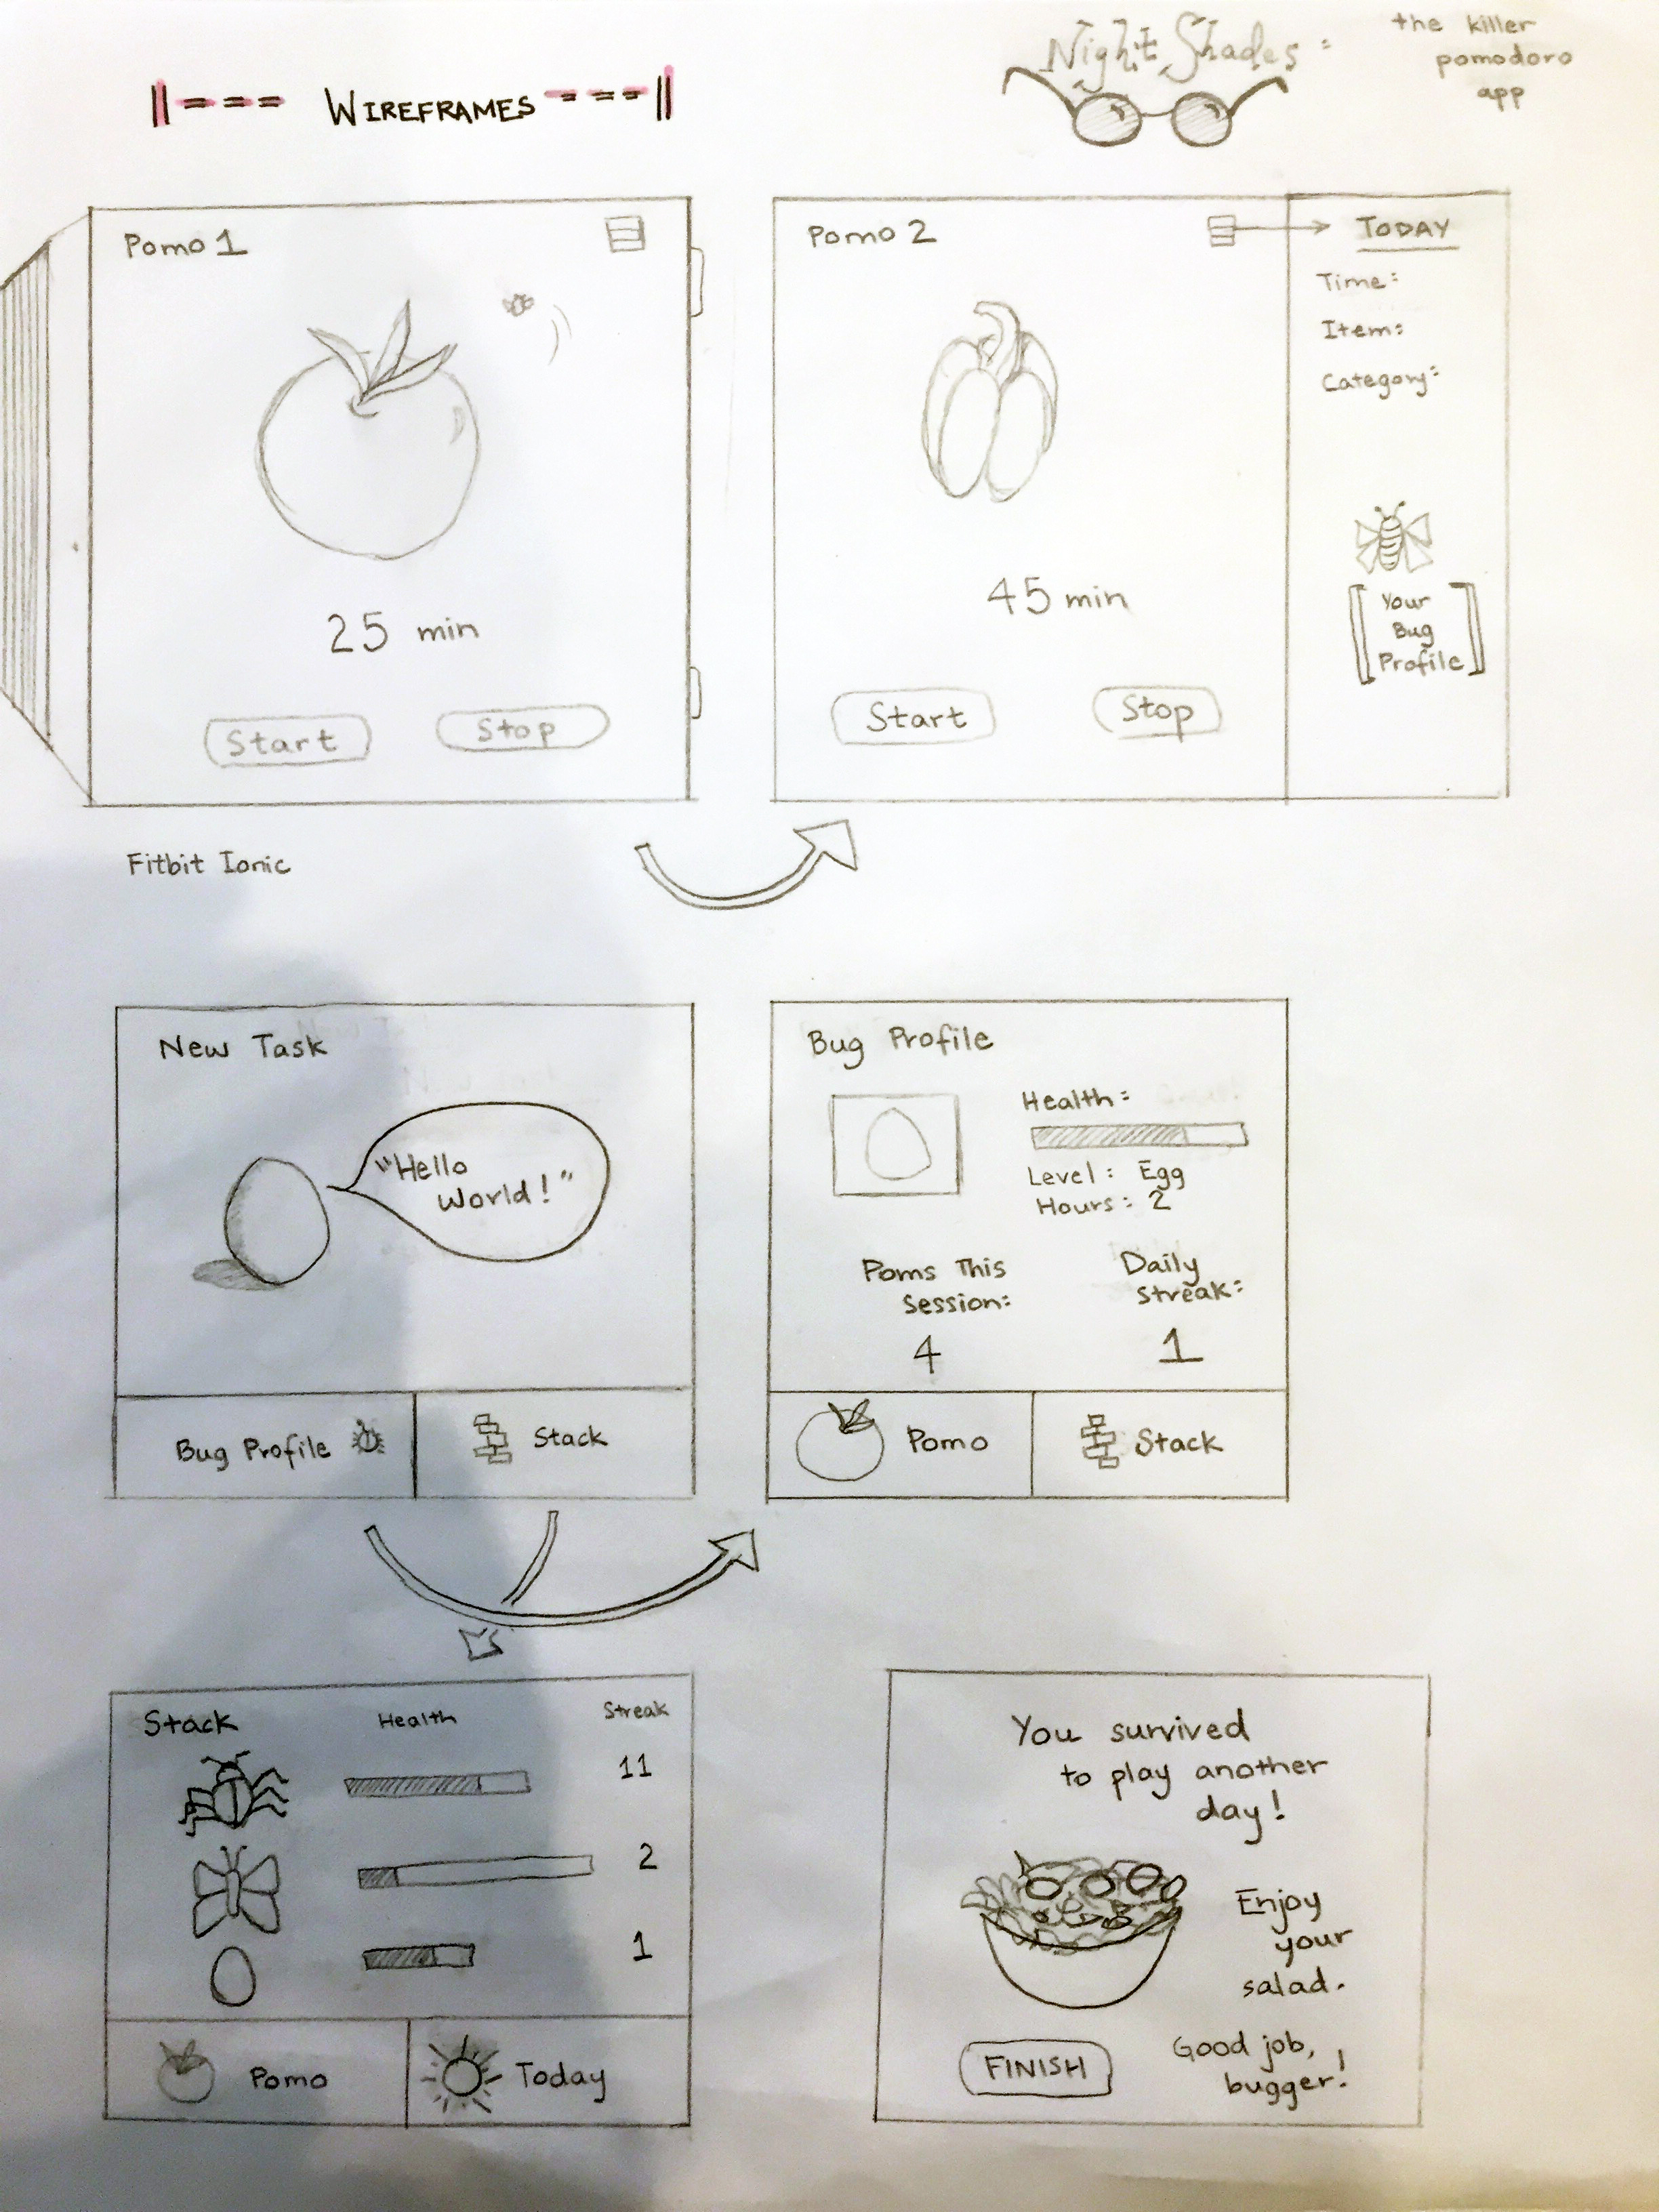 ||=== WIREFRAMES ===||
Night Shades:
the killer
pomodoro
app
Pomo 1
25 min
Start
Stop
Fitbit Ionic
Pomo 2
45 min
Start
Stop
TODAY
Time:
Item:
Category:
Your
Bug
Profile
New Task
"Hello
World!"
Bug Profile
Stack
Bug Profile
Health:
Level: Egg
Hours: 2
Poms This
Session:
4
Daily
Streak:
1
Pomo
Stack
Stack
Health
Streak
11
2
1
Pomo
Today
You survived
to play another
day!
Enjoy
your
salad.
FINISH
Good job,
bugger!